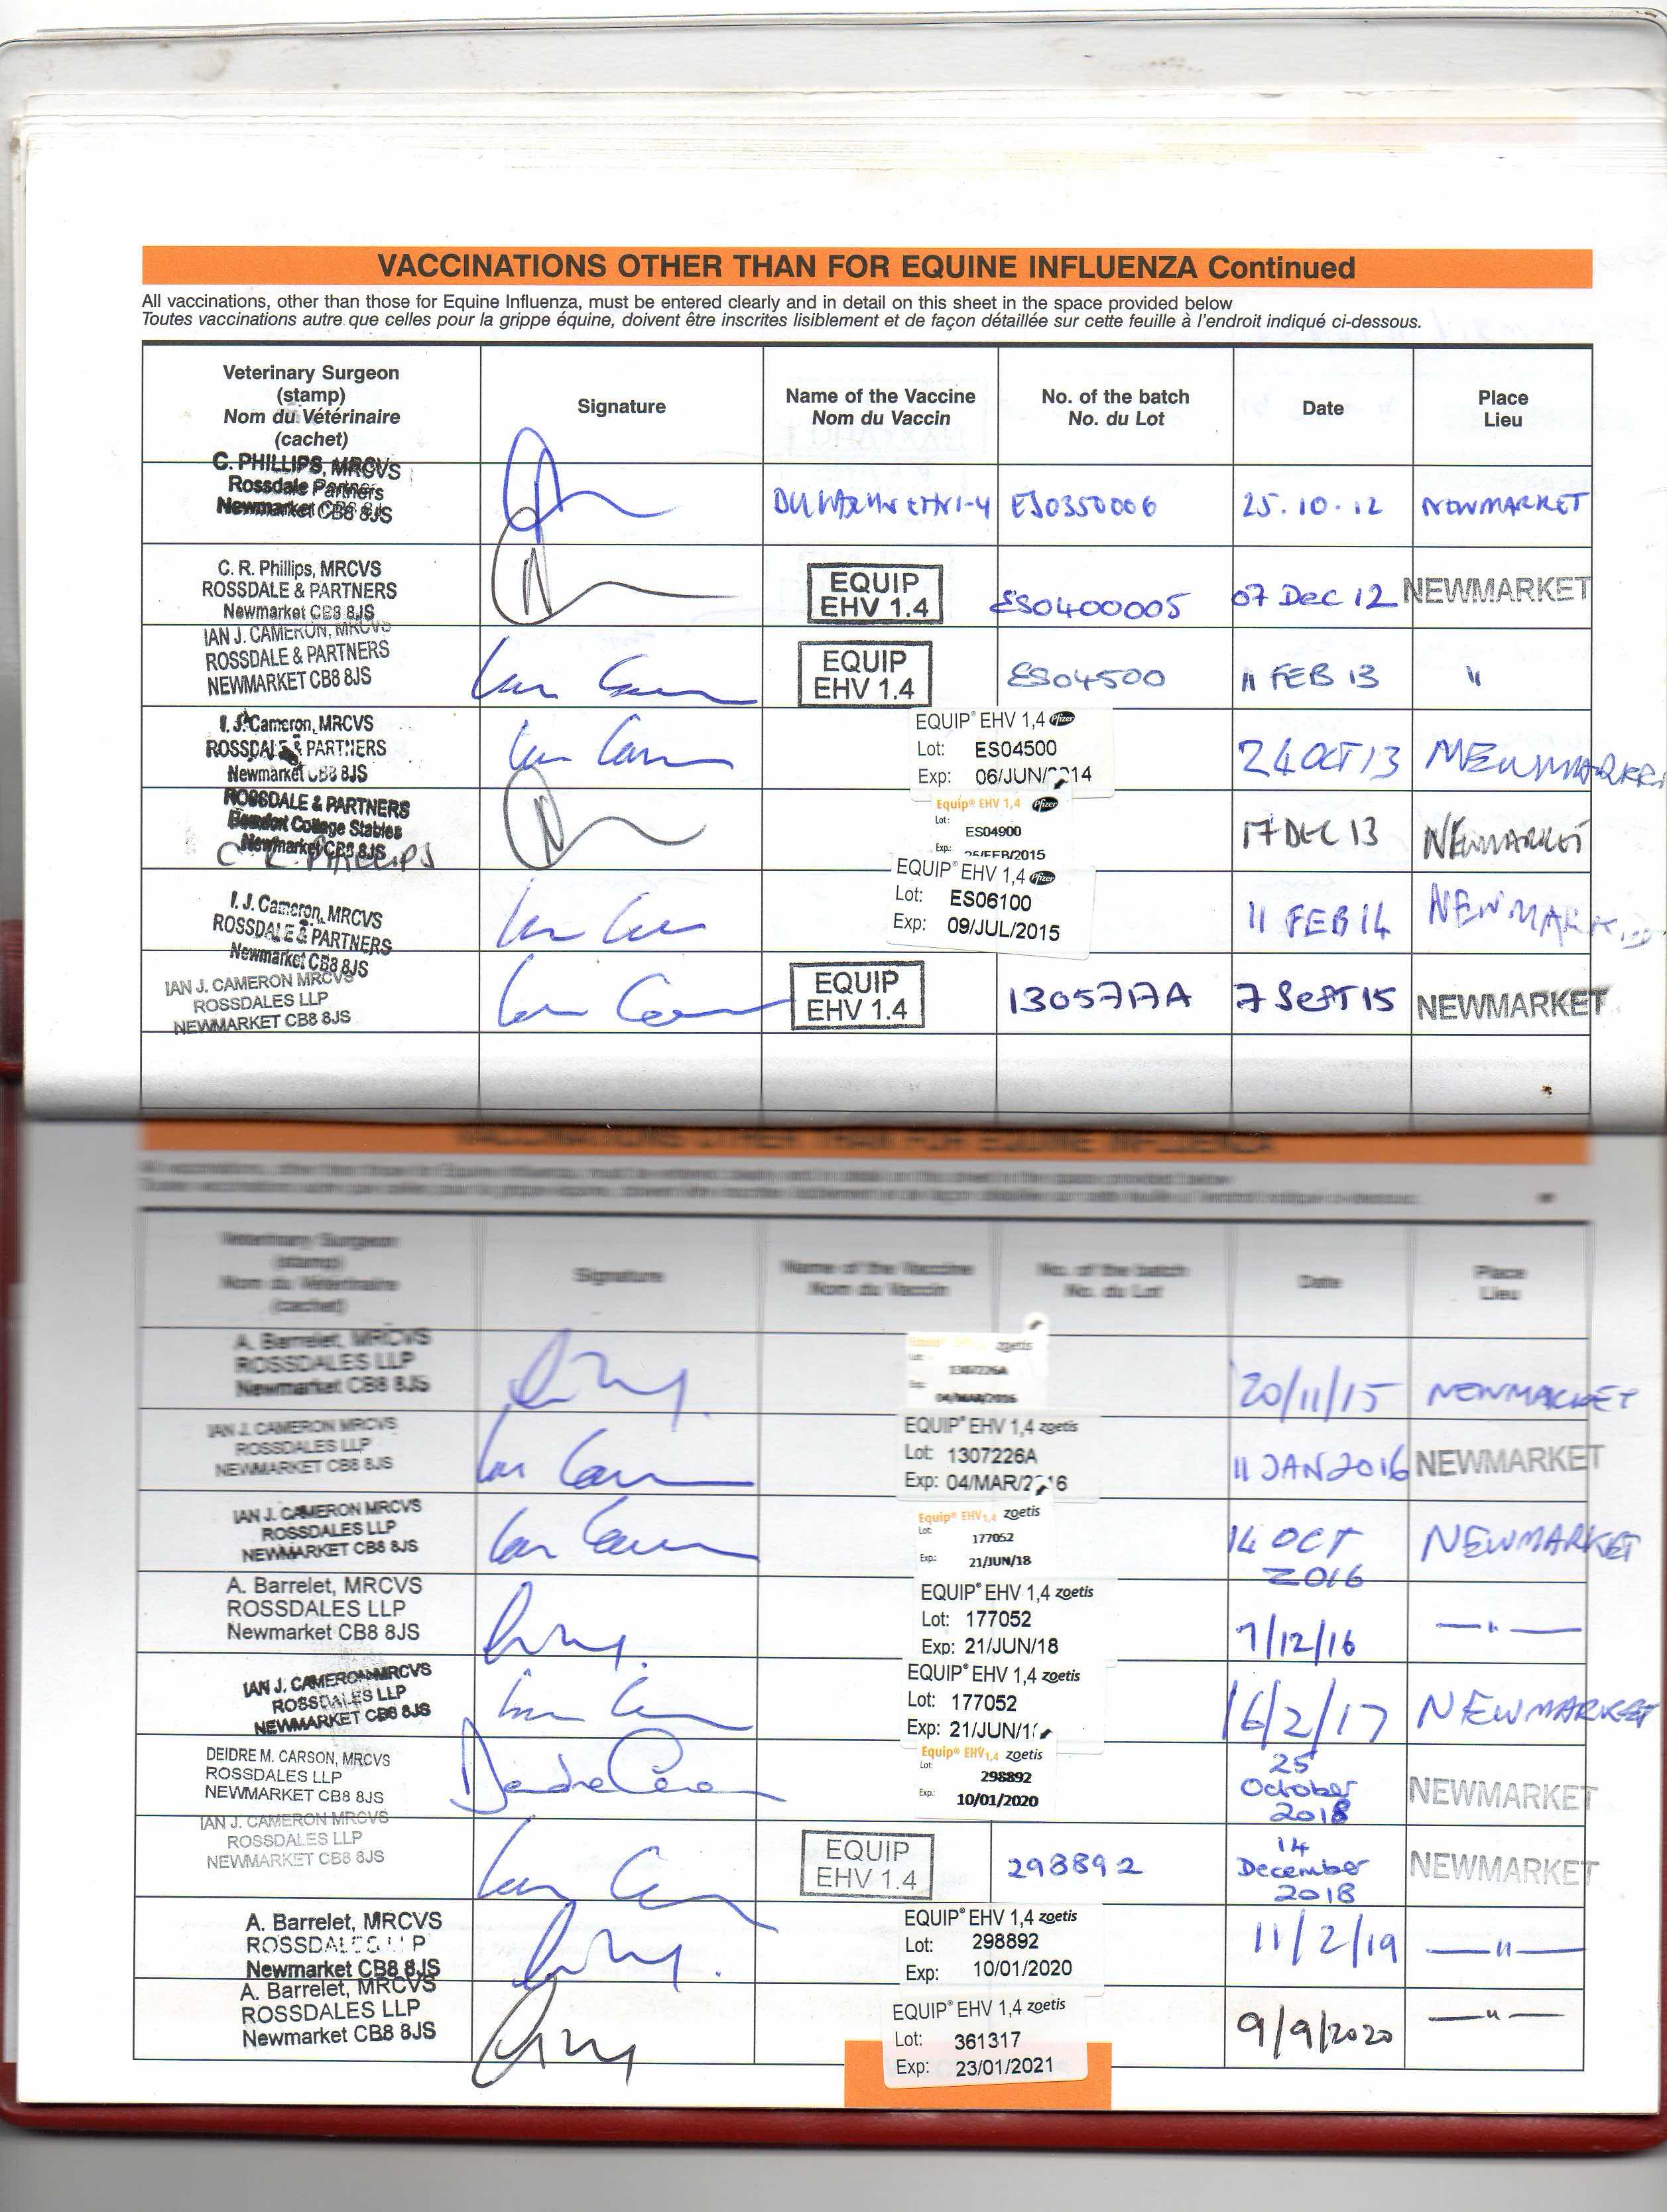 VACCINATIONS OTHER THAN FOR EQUINE INFLUENZA Continued
All vaccinations, other than those for Equine Influenza, must be entered clearly and in detail on this sheet in the space provided below
Toutes vaccinations autre que celles pour la grippe équine, doivent être inscrites lisiblement et de façon détaillée sur cette feuille à l'endroit indiqué ci-dessous.
Veterinary Surgeon
(stamp)
Nom du Vétérinaire
(cachet)
Signature
Name of the Vaccine
Nom du Vaccin
No. of the batch
No. du Lot
Date
Place
Lieu
C. PHILLIPS, MRCVS
Rossdale Partners
Newmarket CB8 8JS
ES0350006
25.10.12
NEWMARKET
C. R. Phillips, MRCVS
ROSSDALE & PARTNERS
Newmarket CB8 8JS
EQUIP
EHV 1.4
ES0400005
07 Dec 12
NEWMARKET
IAN J. CAMERON, MRCVS
ROSSDALE & PARTNERS
NEWMARKET CB8 8JS
EQUIP
EHV 1.4
ES04500
11 FEB 13
"
I. J. Cameron, MRCVS
ROSSDALE & PARTNERS
Newmarket CB8 8JS
EQUIP® EHV 1,4 Pfizer
Lot: ES04500
Exp: 06/JUN/2014
24 OCT 13
NEWMARKET
ROSSDALE & PARTNERS
Beaufort Cottage Stables
Newmarket CB8 8JS
C. R. PHILLIPS
Equip® EHV 1,4 Pfizer
Lot: ES04900
Exp: 25/FEB/2015
17 DEC 13
NEWMARKET
I. J. Cameron, MRCVS
ROSSDALE & PARTNERS
Newmarket CB8 8JS
EQUIP® EHV 1,4 Pfizer
Lot: ES06100
Exp: 09/JUL/2015
11 FEB 14
NEWMARKET
IAN J. CAMERON MRCVS
ROSSDALES LLP
NEWMARKET CB8 8JS
EQUIP
EHV 1.4
1305717A
7 SEPT 15
NEWMARKET
VACCINATIONS OTHER THAN FOR EQUINE INFLUENZA
All vaccinations, other than those for Equine Influenza, must be entered clearly and in detail on this sheet in the space provided below
Toutes vaccinations autre que celles pour la grippe équine, doivent être inscrites lisiblement et de façon détaillée sur cette feuille à l'endroit indiqué ci-dessous.
Veterinary Surgeon
(stamp)
Nom du Vétérinaire
(cachet)
Signature
Name of the Vaccine
Nom du Vaccin
No. of the batch
No. du Lot
Date
Place
Lieu
A. Barrelet, MRCVS
ROSSDALES LLP
Newmarket CB8 8JS
zoetis
Lot: 1307226A
Exp: 04/MAR/2016
20/11/15
NEWMARKET
IAN J. CAMERON MRCVS
ROSSDALES LLP
NEWMARKET CB8 8JS
EQUIP® EHV 1,4 zoetis
Lot: 1307226A
Exp: 04/MAR/2016
11 JAN 2016
NEWMARKET
IAN J. CAMERON MRCVS
ROSSDALES LLP
NEWMARKET CB8 8JS
Equip® EHV1,4 zoetis
Lot: 177052
Exp: 21/JUN/18
14 OCT
2016
NEWMARKET
A. Barrelet, MRCVS
ROSSDALES LLP
Newmarket CB8 8JS
EQUIP® EHV 1,4 zoetis
Lot: 177052
Exp: 21/JUN/18
7/12/16
— " —
IAN J. CAMERON MRCVS
ROSSDALES LLP
NEWMARKET CB8 8JS
EQUIP® EHV 1,4 zoetis
Lot: 177052
Exp: 21/JUN/1
16/2/17
NEWMARKET
DEIDRE M. CARSON, MRCVS
ROSSDALES LLP
NEWMARKET CB8 8JS
Equip® EHV1,4 zoetis
Lot: 298892
Exp: 10/01/2020
25
October
2018
NEWMARKET
IAN J. CAMERON MRCVS
ROSSDALES LLP
NEWMARKET CB8 8JS
EQUIP
EHV 1.4
298892
14
December
2018
NEWMARKET
A. Barrelet, MRCVS
ROSSDALES LLP
Newmarket CB8 8JS
EQUIP® EHV 1,4 zoetis
Lot: 298892
Exp: 10/01/2020
11/2/19
— " —
A. Barrelet, MRCVS
ROSSDALES LLP
Newmarket CB8 8JS
EQUIP® EHV 1,4 zoetis
Lot: 361317
Exp: 23/01/2021
9/9/2020
— " —